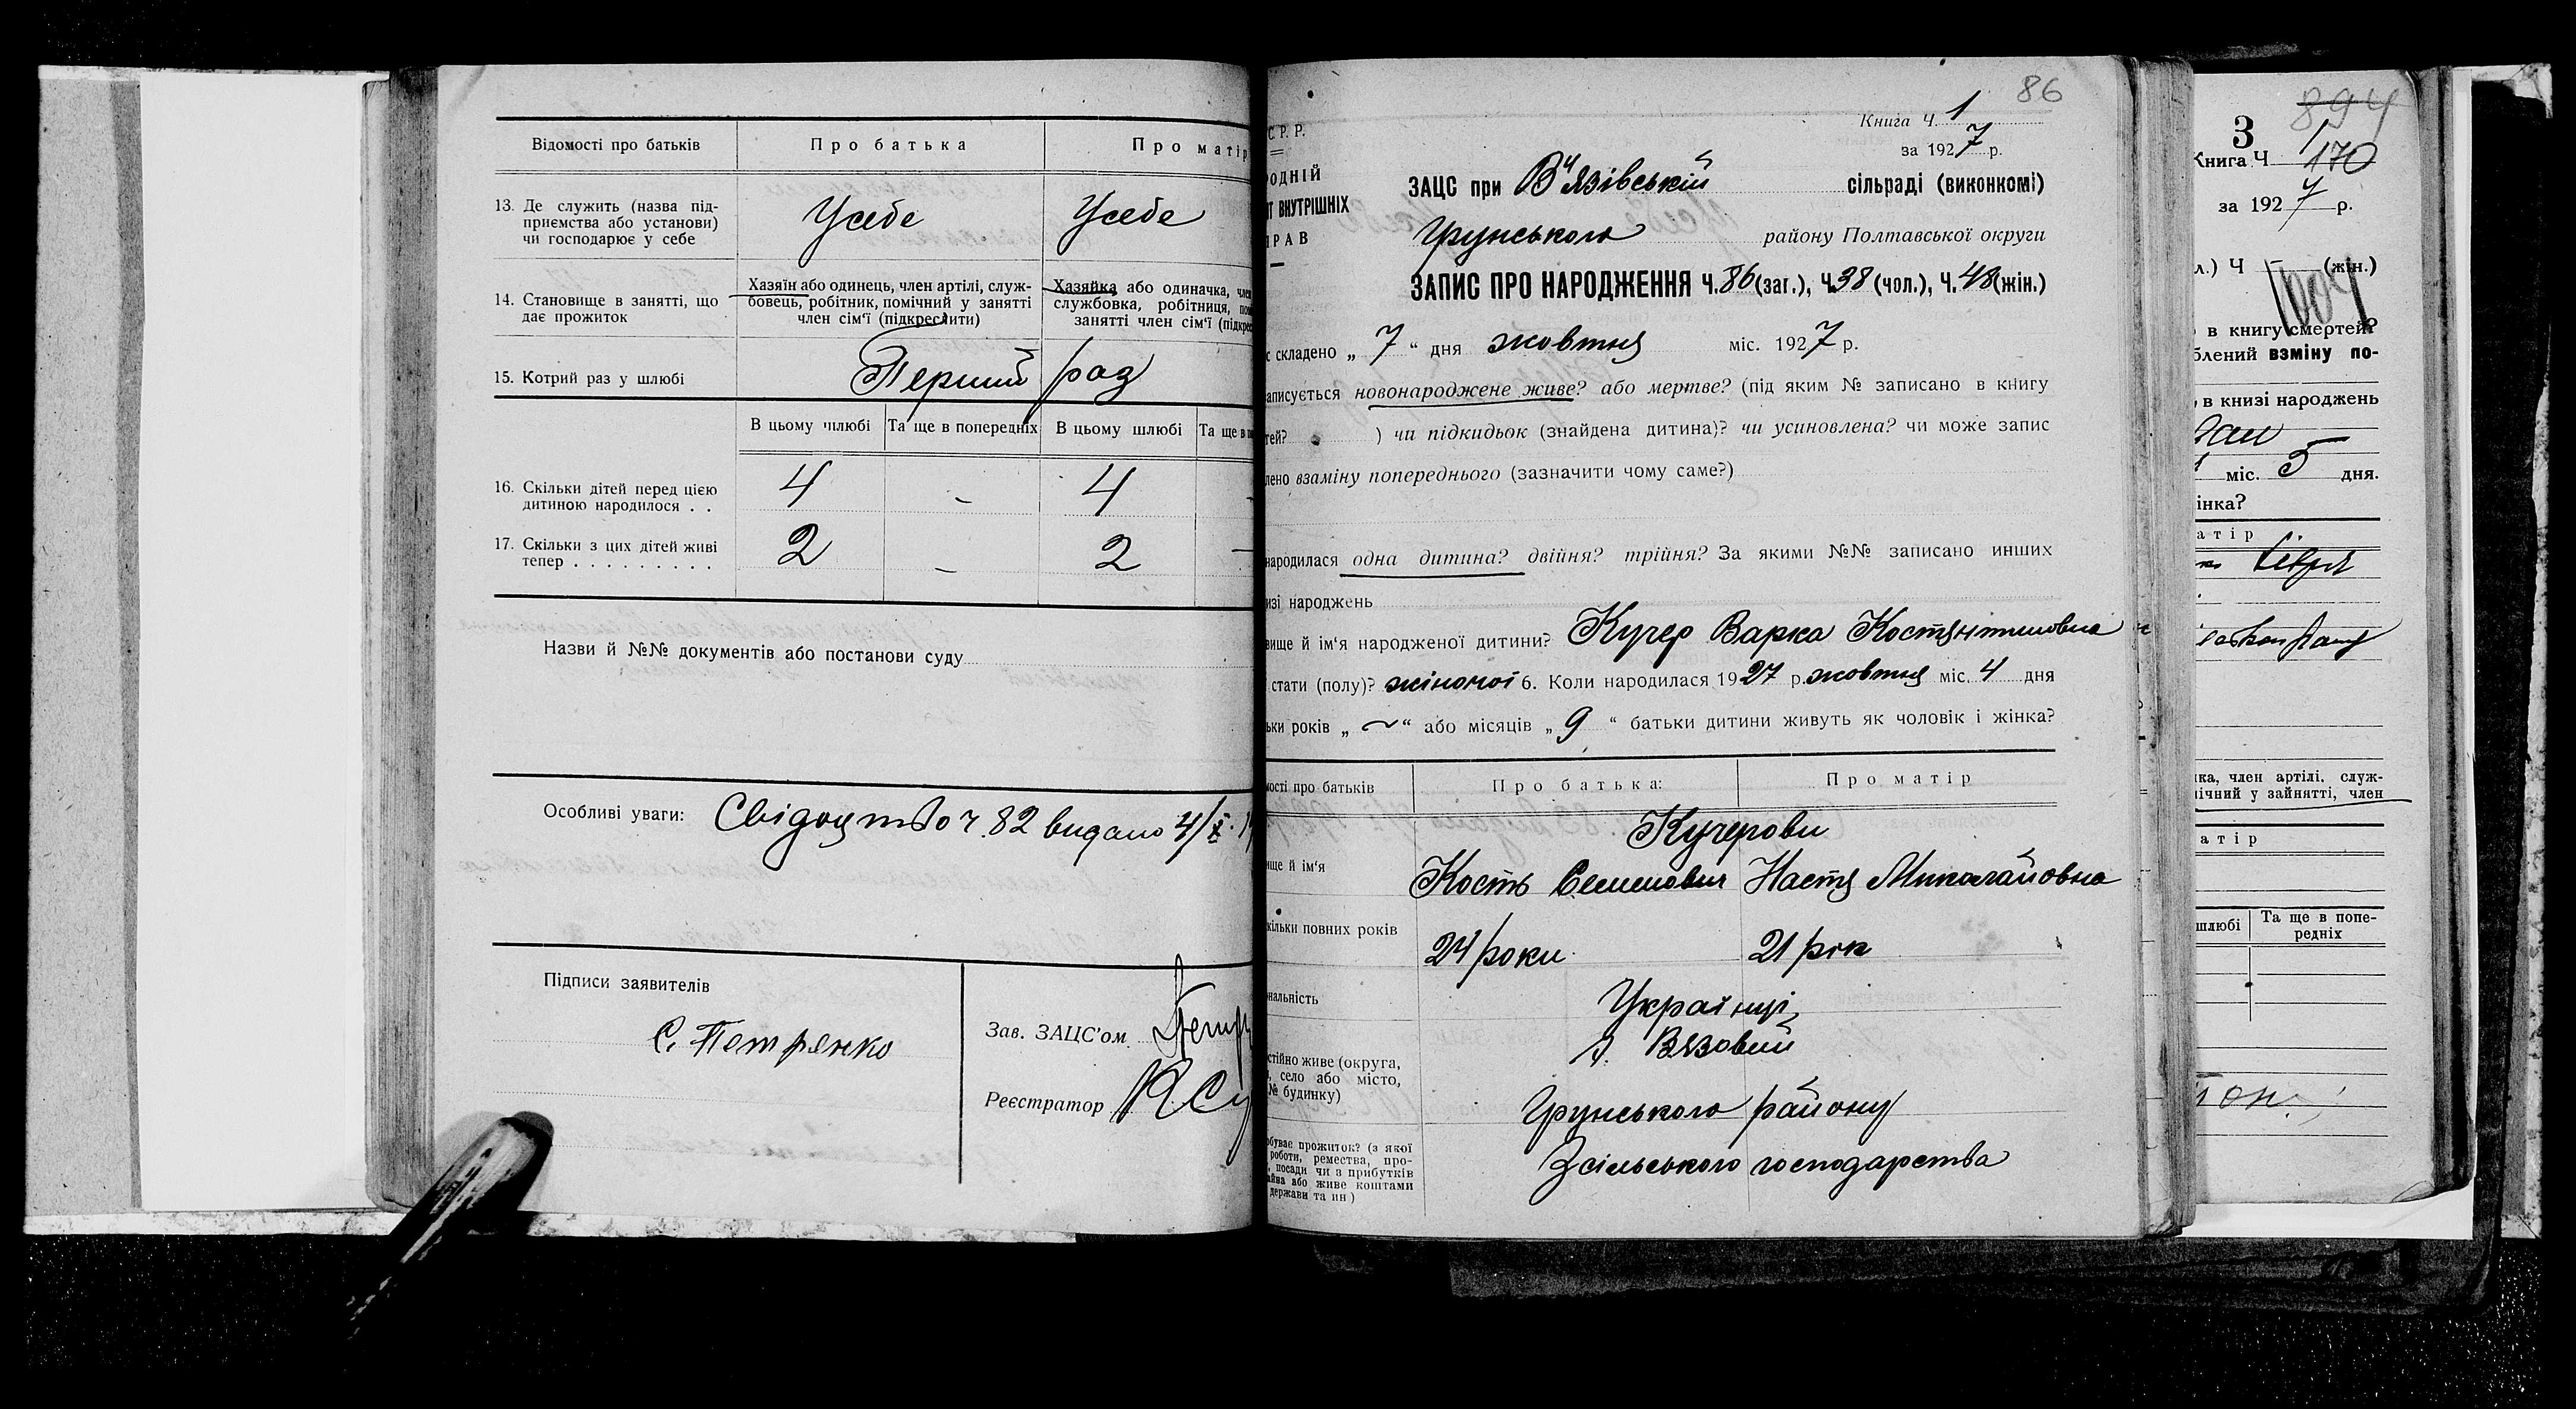 Відомості про батьків
Про батька
Про матір
13. Де служить (назва під-
приємства або установи)
чи господарює у себе
Усебе
Усебе
14. Становище в занятті, що
дає прожиток
Хазяїн або одинець, член артілі, служ-
бовець, робітник, помічний у занятті
член сім'ї (підкреслити)
Хазяйка або одиначка, член
службовка, робітниця, пом
занятті член сім'ї (підкрес
15. Котрий раз у шлюбі
Перший раз
В цьому шлюбі
Та ще в попередніх
В цьому шлюбі
Та ще в по
16. Скільки дітей перед цією
дитиною народилося . .
4
-
4
-
17. Скільки з цих дітей живі
тепер . . . . . . . . .
2
-
2
-
Назви й №№ документів або постанови суду
Особливі уваги: Свідоцтво ч. 82 видано 4/X. 1
Підписи заявителів
С. Петренко
Зав. ЗАЦС'ом Петр
Реєстратор
86
Книга Ч. 1
за 1927 р.
С. Р. Р.
РОДНІЙ
Т ВНУТРІШНІХ
РАВ
ЗАЦС при В'язівській сільраді (виконкомі)
Грунського району Полтавської округи
ЗАПИС ПРО НАРОДЖЕННЯ Ч. 86 (заг.), Ч. 38 (чол.), Ч. 48 (жін.)
с складено „ 7 “ дня жовтня міс. 1927 р.
аписується новонароджене живе? або мертве? (під яким № записано в книгу
тей? ) чи підкидьок (знайдена дитина)? чи усиновлена? чи може запис
лено взаміну попереднього (зазначити чому саме?)
народилася одна дитина? двійня? трійня? За якими №№ записано инших
изі народжень
вище й ім'я народженої дитини? Кучер Варка Костянтиновна
стати (полу)? жіночої 6. Коли народилася 1927 р. жовтня міс. 4 дня
ьки років „ ~ “ або місяців „ 9 “ батьки дитини живуть як чоловік і жінка?
мості про батьків
Про батька:
Про матір
Кучерови
ище й ім'я
Кость Семенович
Настя Миколайовна
кільки повних років
24 роки
21 рік
нальність
Українці
стійно живе (округа,
, село або місто,
№ будинку)
Вязовий
Грунського району
обуває прожиток? (з якої
роботи, ремества, про-
, посади чи з прибутків
айна або живе коштами
держави та ин )
Зсільського господарства
894
3
Книга Ч 1
170
за 1927 р.
л.) Ч - (жін.)
в книгу смертей?
блений взміну по-
в книзі народжень
міс. 5 дня.
інка?
атір
ка, член артілі, служ-
ічний у зайнятті, член
атір
шлюбі
Та ще в попе-
редніх